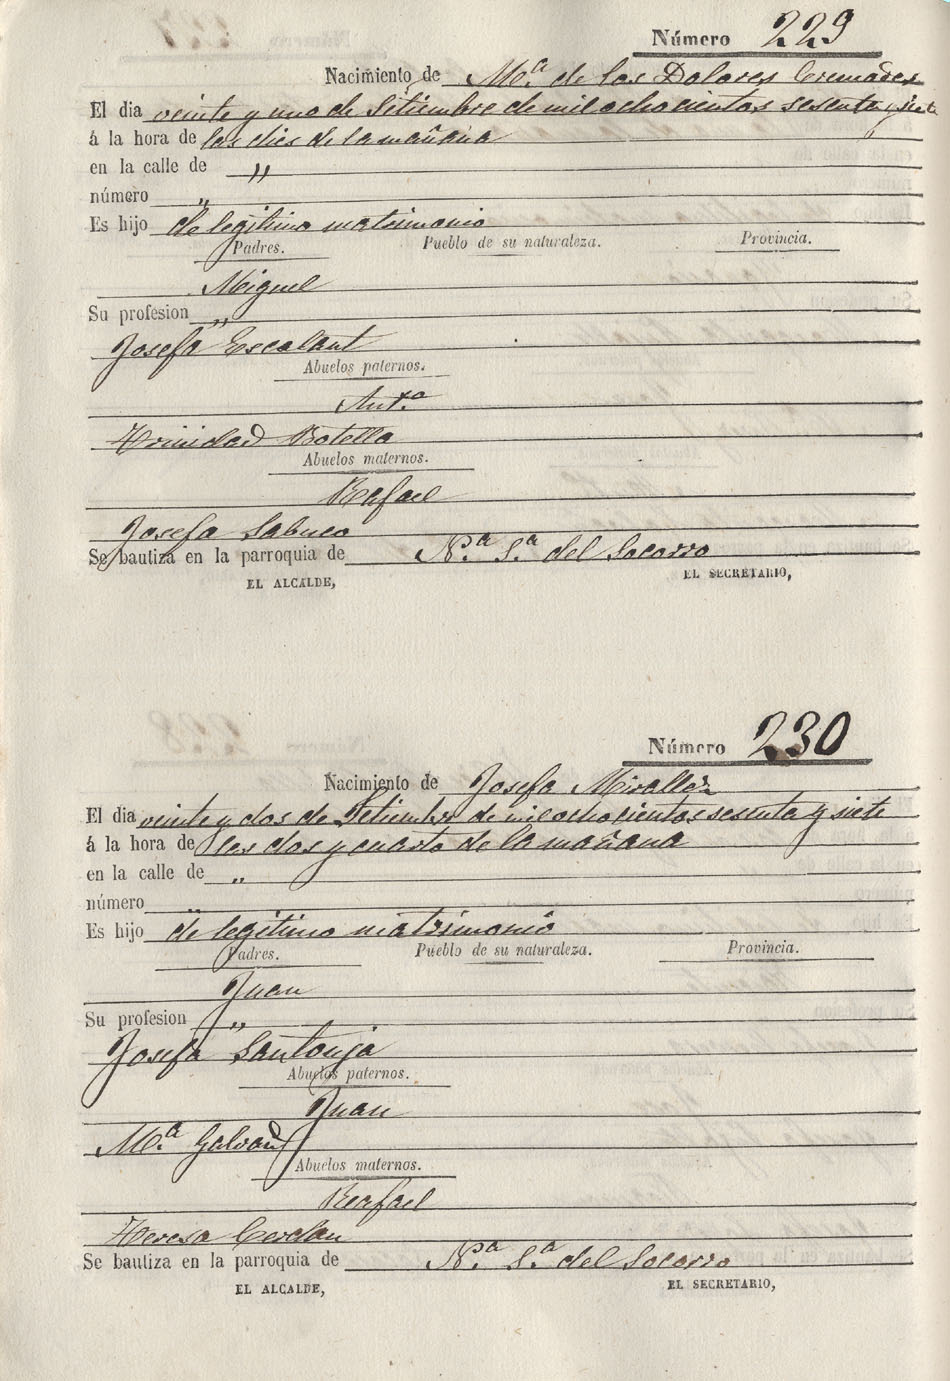 Número 229
Nacimiento de Mª de los Dolores Cremades
El dia veinte y uno de Setiembre de mil ochocientos sesenta y siete
á la hora de las dies de la mañana
en la calle de "
número "
Es hijo de legitimo matrimonio
Padres. Pueblo de su naturaleza. Provincia.
Miguel
Su profesion "
Josefa Escolant
Abuelos paternos.
Antº
Trinidad Botella
Abuelos maternos.
Rafael
Josefa Sabuco
Se bautiza en la parroquia de Nª Sª del Socorro
EL ALCALDE, EL SECRETARIO,
Número 230
Nacimiento de Josefa Miralles
El dia veinte y dos de Setiembre de mil ochocientos sesenta y siete
á la hora de las dos y cuarto de la mañana
en la calle de "
número "
Es hijo de legitimo matrimonio
Padres. Pueblo de su naturaleza. Provincia.
Juan
Su profesion "
Josefa Santonja
Abuelos paternos.
Juan
Mª Galvañ
Abuelos maternos.
Rafael
Teresa Cerdan
Se bautiza en la parroquia de Nª Sª del Socorro
EL ALCALDE, EL SECRETARIO,